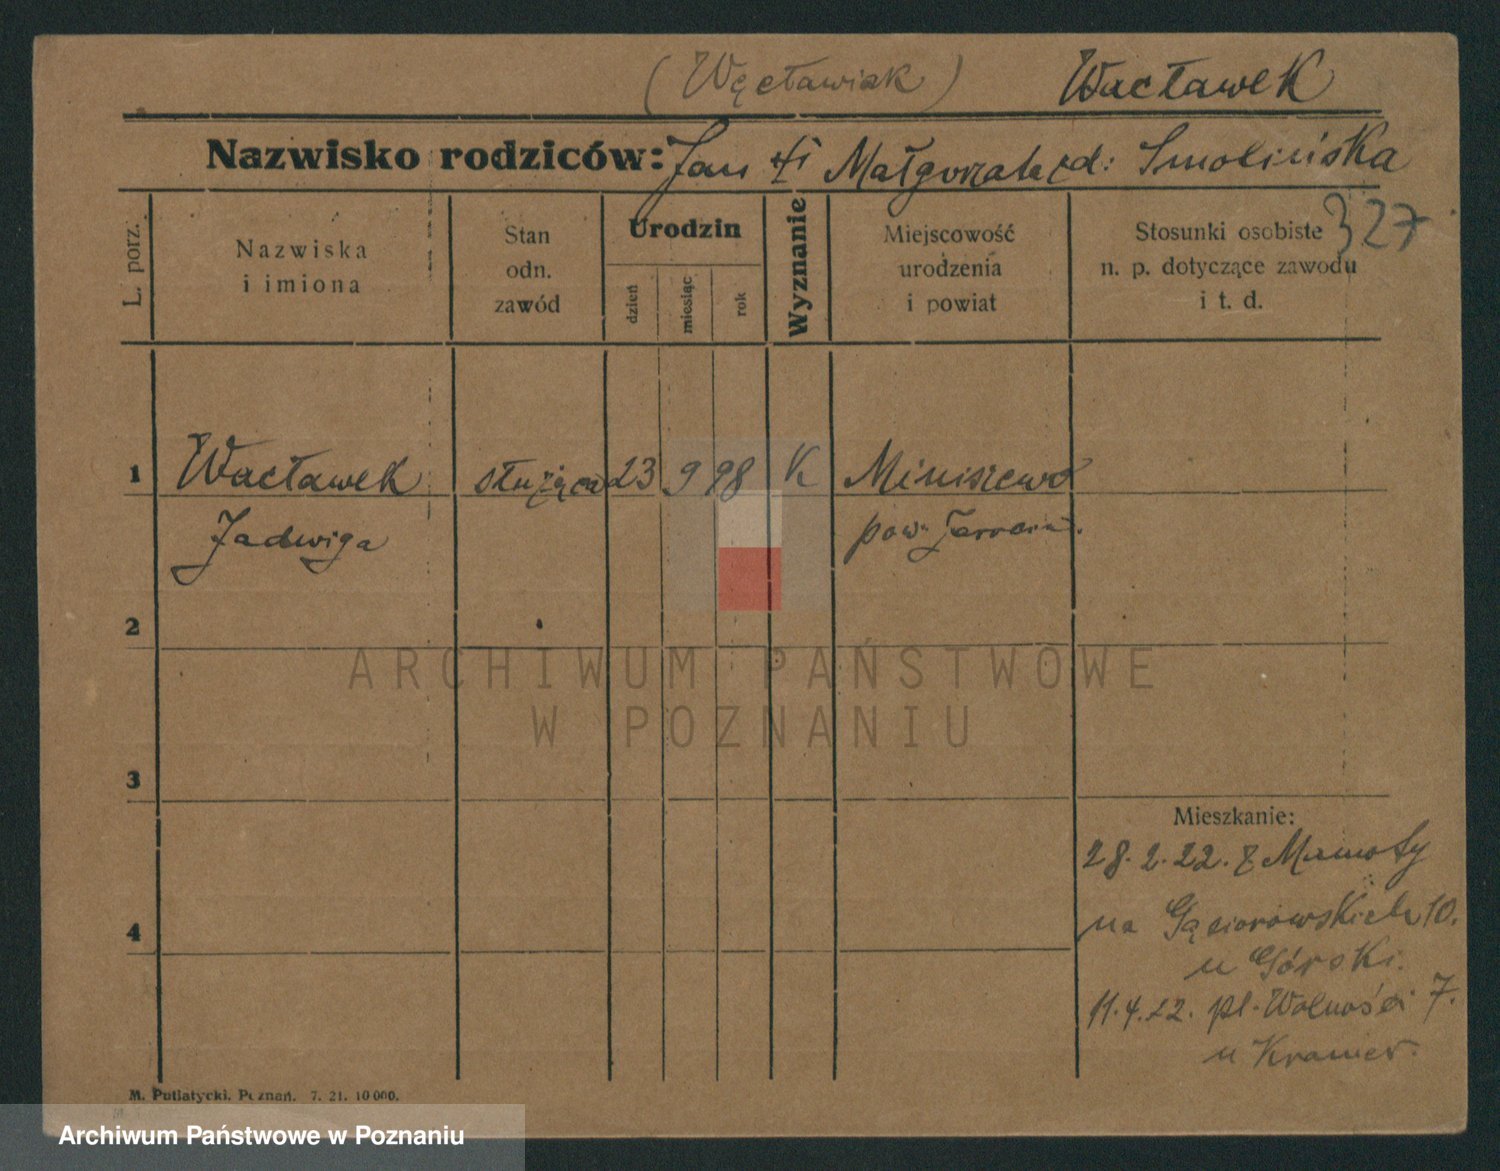 (Węcławiak) Wacławek
Nazwisko rodziców: Jan i Małgorzata d: Smolińska
327
L. porz.
Nazwiska
i imiona
Stan
odn.
zawód
Urodzin
dzień
miesiąc
rok
Wyznanie
Miejscowość
urodzenia
i powiat
Stosunki osobiste
n. p. dotyczące zawodu
i t. d.
1 Wacławek służąca 23 9 98 K Miniszewo
Jadwiga pow.
2
ARCHIWUM PAŃSTWOWE
W POZNANIU
3
Mieszkanie:
28.2.22. z Mamoty
na Gąsiorowskich 10.
4
u Górski.
11.4.22. pl. Wolności 7.
u Kramer.
M. Putiatycki. Poznań. 7. 21. 10000.
Archiwum Państwowe w Poznaniu